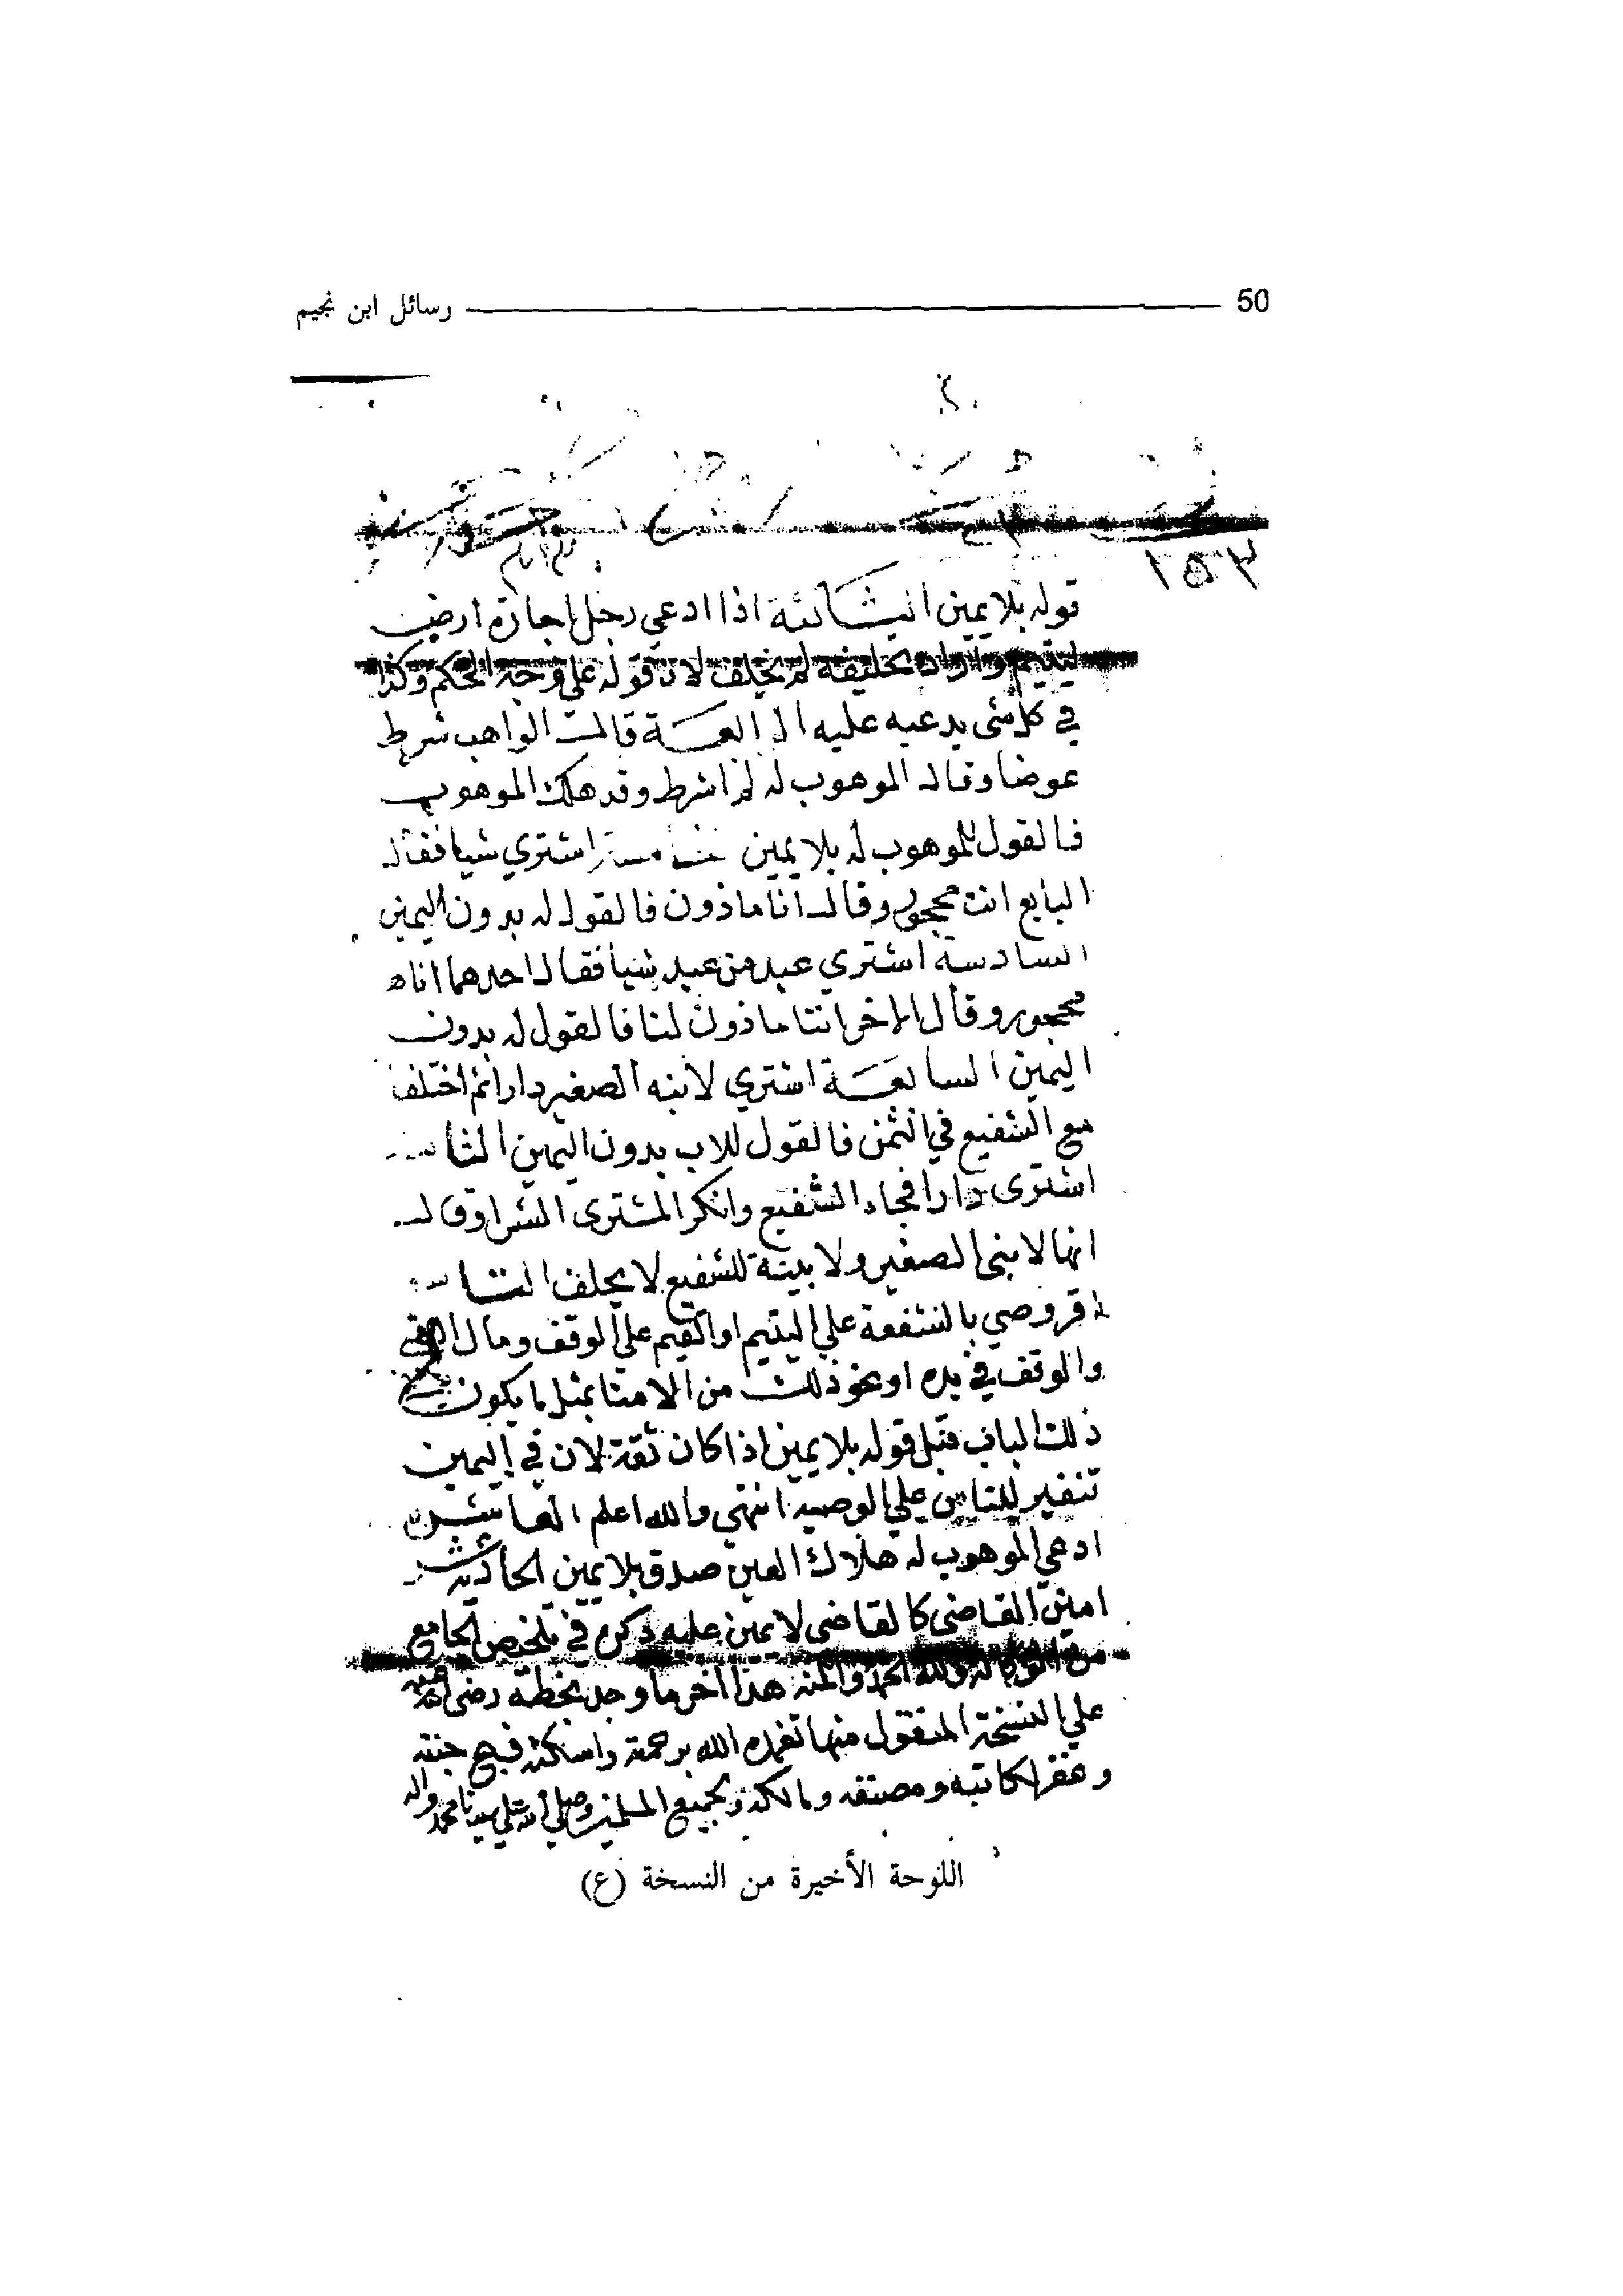 50 رسائل ابن نجيم
١٥٣
قوله بلا يمين الثالثة اذا ادعي رجل اجارة ارض
ليتيم واراد تحليفه لم يحلف لان قوله علي وجه الحكم وكذا
في كل شي يدعيه عليه الرابعة قال الواهب شرط
عوضا وقال الموهوب له لم اشرط وقد هلك الموهوب
فالقول للموهوب له بلا يمين الخامسة اشتري شيا فقال
البايع انت محجور وقال انا ماذون فالقول له بدون اليمين
السادسة اشتري عبد من عبد شيا فقال احدهما انا
محجور وقال الاخر انا ماذون لنا فالقول له بدون
اليمين السابعة اشتري لابنه الصغير دارا ثم اختلف
مع الشفيع في الثمن فالقول للاب بدون اليمين الثامنة
اشترى دارا فجاء الشفيع وانكر المشترى الشرا وقال
انها لابني الصغير ولا بينة للشفيع لا يحلف التاسعة
وصي بالشفعة علي اليتيم او القيم علي الوقف ومال
والوقف في يده او نحو ذلك من الامنا بمثل ما يكون
ذلك الباب قبل قوله بلا يمين اذا كان ثقة لان في اليمين
تنفير للناس علي الوصية انتهي والله اعلم العاشر
ادعي الموهوب له هلاك العين صدق بلا يمين الحادية عشر
امين القاضى كالقاضى لا يمين عليه ذكره في تلخيص الجامع
من الوكالة ولله الحمد والمنة هذا اخر ما وجد بخطه رضي الله عنه
علي النسخة المنقول منها تغمده الله برحمة واسكنه فسيح جنته
وغفر لكاتبه ومصنفه ومالكه ولجميع المسلمين وصلي الله علي سيدنا محمد واله
اللوحة الأخيرة من النسخة (ع)